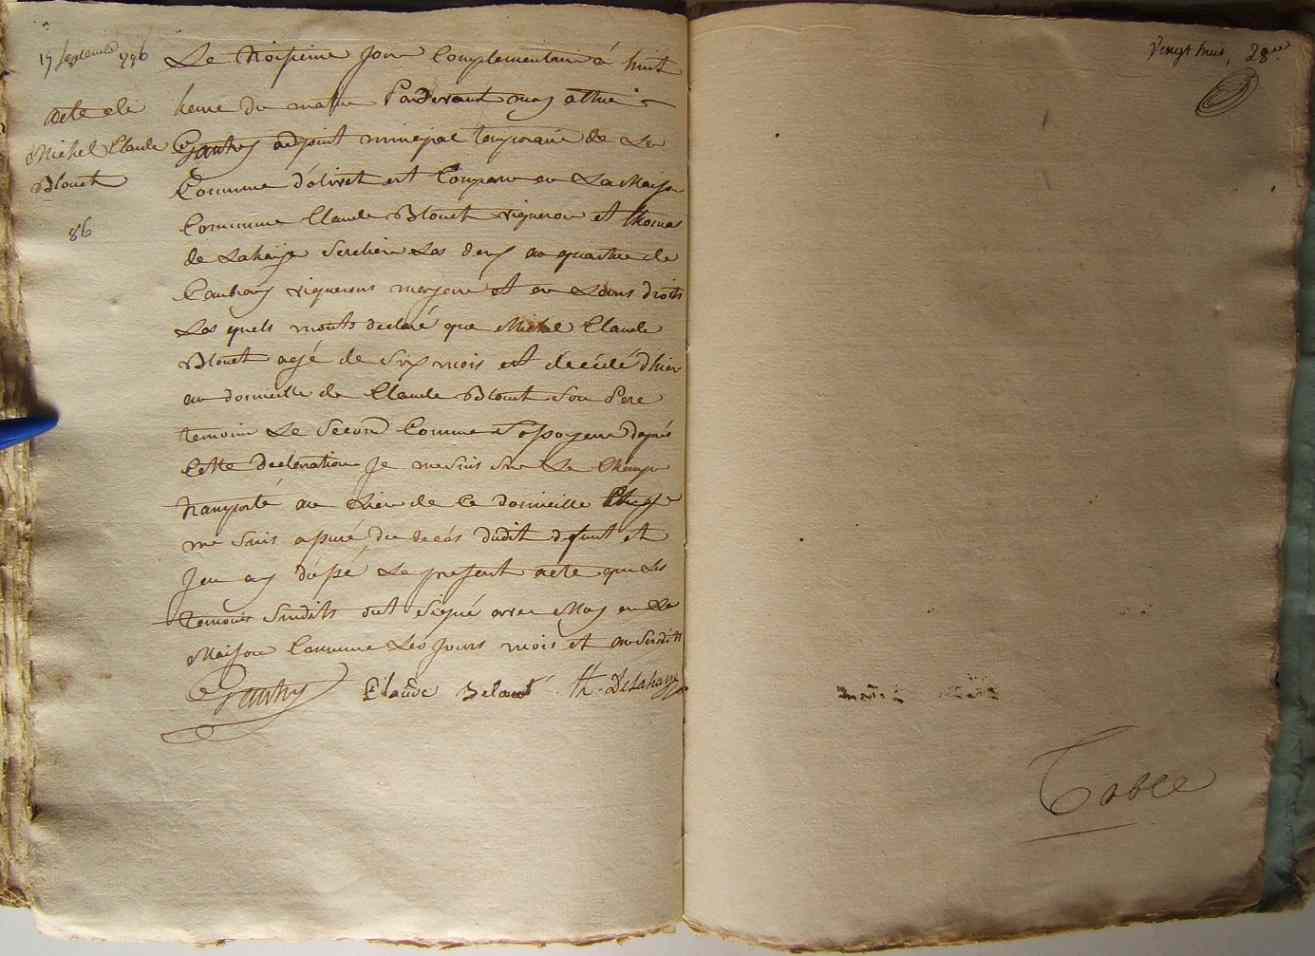 19 septembre 1796
acte de
Michel Claude
Blouet
86
Le troisieme jour Complementaire à huit
heure du matin Pardevant moy
Gautry adjoint municipal temporaire de La
Commune d'olivet est Comparu en La Maison
Commune Claude Blouet vigneron et thomas
de Lahaye Les deux au quartier de
Caubray vignerons majeure et en Leurs droits
Les quels mont declaré que Michel Claude
Blouet agé de six mois est décédé d'hier
au domicille de Claude Blouet Son Pere
temoin Le Second Comme dapres
Cette declaration Je me suis sur Le Champ
transporté au Lieu de Ce domicille
me suis assuré du decés dudit defunt et
Jen ay dressé Le present acte que Les
temoins Susdits ont Signé avec Moy en La
Maison Commune Les jours mois et an susdits
Gautry Claude Belouet th. Delahaye
Vingt huit, 28
Table